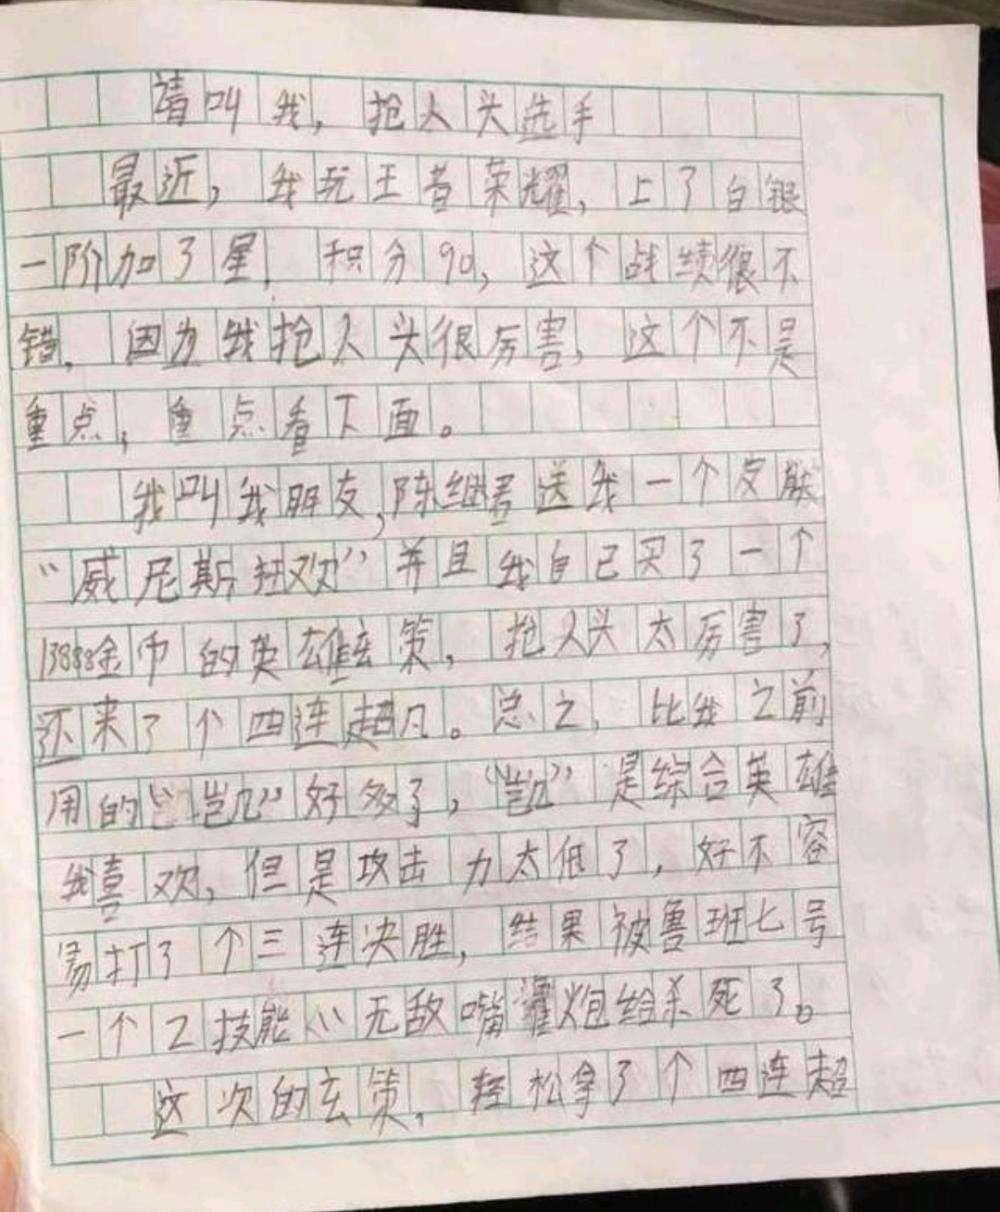 请叫我，抢人头选手
最近，我玩王者荣耀，上了白银
一阶加了星，积分90，这个战绩很不
错，因为我抢人头很厉害，这个不是
重点，重点看下面。
我叫我朋友，陈继君送我一个皮肤
“威尼斯狂欢”并且我自己买了一个
13888金币的英雄玄策，抢人头太厉害了，
还来了个四连超凡。总之，比我之前
用的“凯”好多了，“凯”是综合英雄
我喜欢，但是攻击力太低了，好不容
易打了个三连决胜，结果被鲁班七号
一个2技能“无敌嘴灌炮给杀死了。
这次的玄策，轻松拿了个四连超